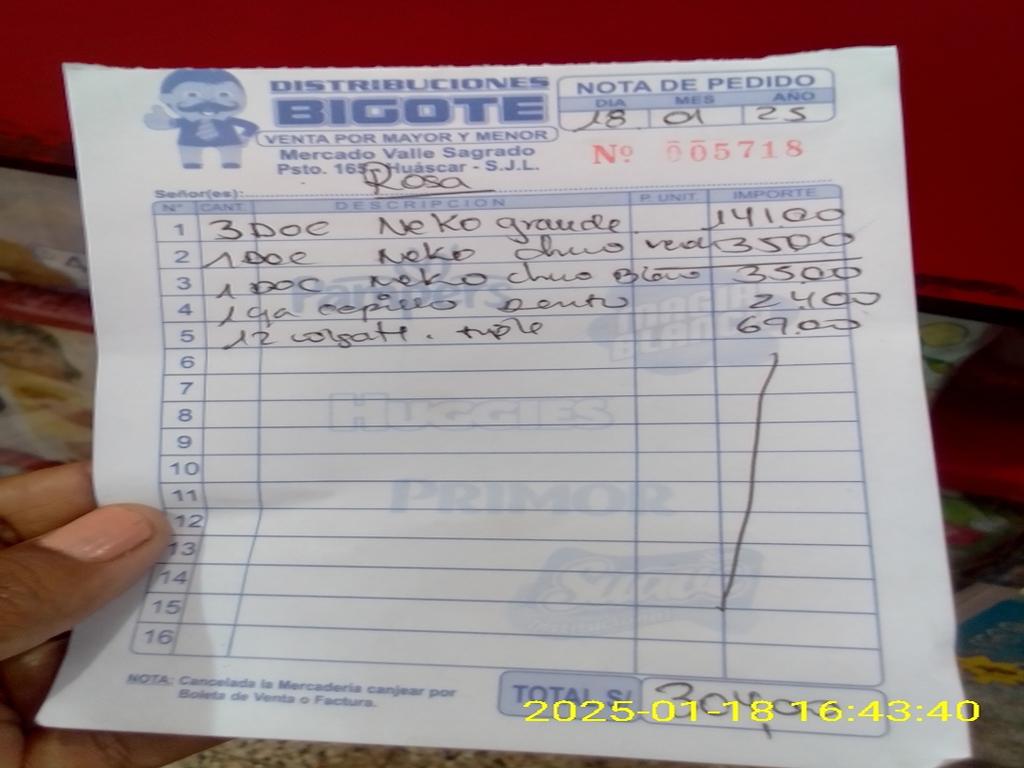 DISTRIBUCIONES
BIGOTE
VENTA POR MAYOR Y MENOR
Mercado Valle Sagrado
Psto. 165 Huáscar - S.J.L.
NOTA DE PEDIDO
DIA MES AÑO
18 01 25
Nº 005718
Señor(es): Rosa
Nº CANT. DESCRIPCION P. UNIT. IMPORTE
1 3 DOC Neko grande 141.00
2 1 DOC Neko chico 35.00
3 1 DOC Neko chico 35.00
4 1 cepillo Dento 24.00
5 12 colgatt. triple 69.00
6
7
8
9
10
11
12
13
14
15
16
Pampers
MAGIA BLANCA
HUGGIES
PRIMOR
Suave
NOTA: Cancelada la Mercadería canjear por
Boleta de Venta o Factura.
TOTAL S/ 304.00
2025-01-18 16:43:40